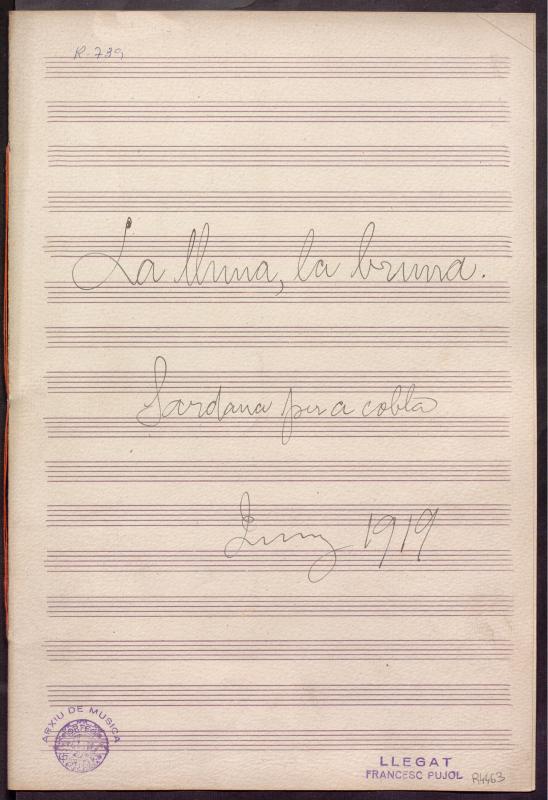 R-789
La lluna, la bruna.
Sardana per a cobla
Juny 1919
ARXIU DE MUSICA
LLEGAT
FRANCESC PUJOL
R4463